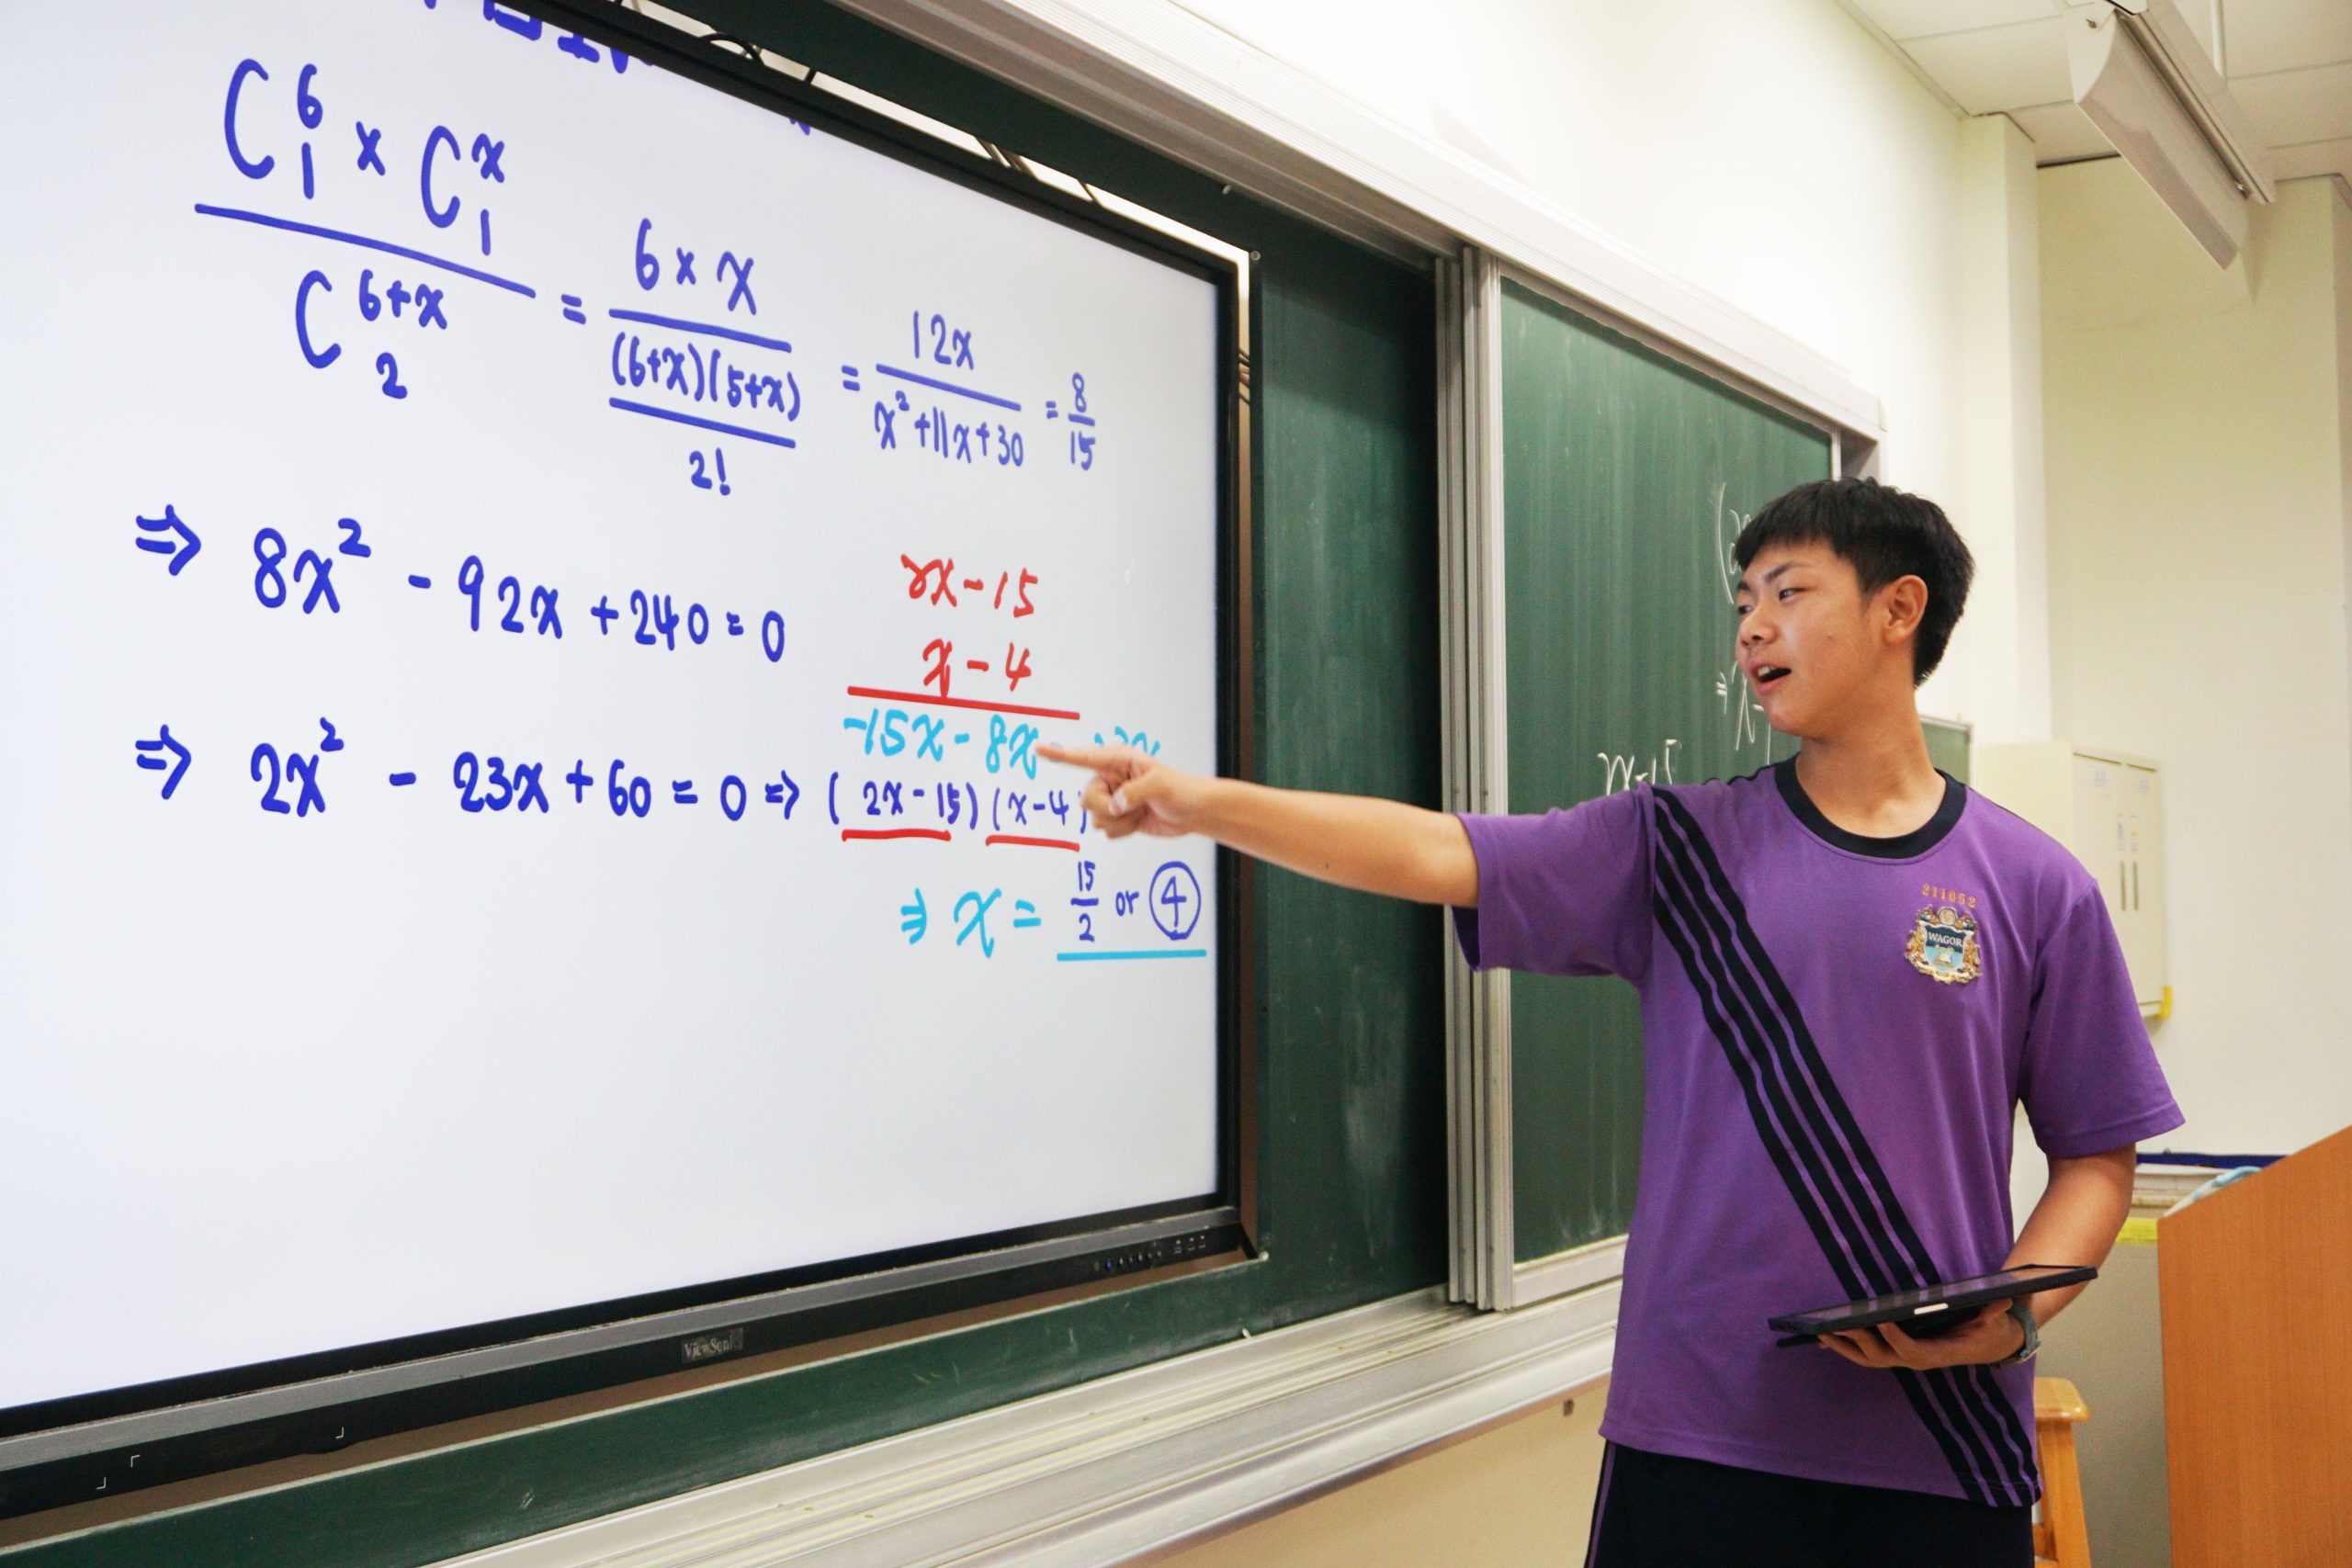 C₁⁶ × C₁ˣ / C₂⁶⁺ˣ = 6 × x / ((6+x)(5+x) / 2!) = 12x / (x²+11x+30) = 8/15
⇒ 8x² - 92x + 240 = 0
2x - 15
x - 4
-15x - 8x
⇒ 2x² - 23x + 60 = 0 ⇒ (2x - 15)(x - 4)
⇒ x = 15/2 or ④
ViewSonic
211052
WAGOR